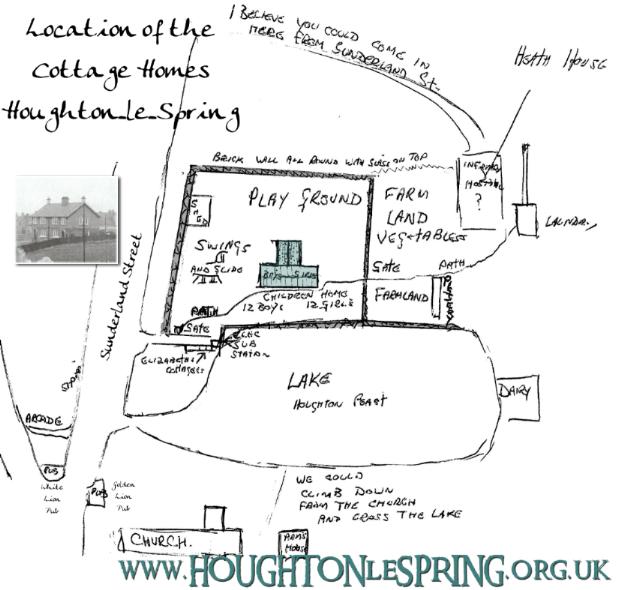 Location of the
Cottage Homes
Houghton_le_Spring
I BELIEVE YOU COULD COME IN
HERE FROM SUNDERLAND ST-
HEATH HOUSE
BRICK WALL ALL ROUND WITH GLASS ON TOP
HOSPITAL
?
PLAY GROUND
FARM
LAND
VEGETABLES
SWINGS
AND SLIDE
BOYS GIRLS
GATE
PATH
FARMLAND
CHILDREN HOME
12 BOYS 12 GIRLS
PATH
GATE
ELEC
SUB
STATION
ELIZABETH
COTTAGES
Sunderland Street
LAKE
HOUGHTON FEAST
DAIRY
ARCADE
PUB
White
Lion
Pub
PUB
Golden
Lion
Pub
WE COULD
CLIMB DOWN
FROM THE CHURCH
AND CROSS THE LAKE
CHURCH.
ALMS
HOUSE
WWW.HOUGHTONLESPRING.ORG.UK